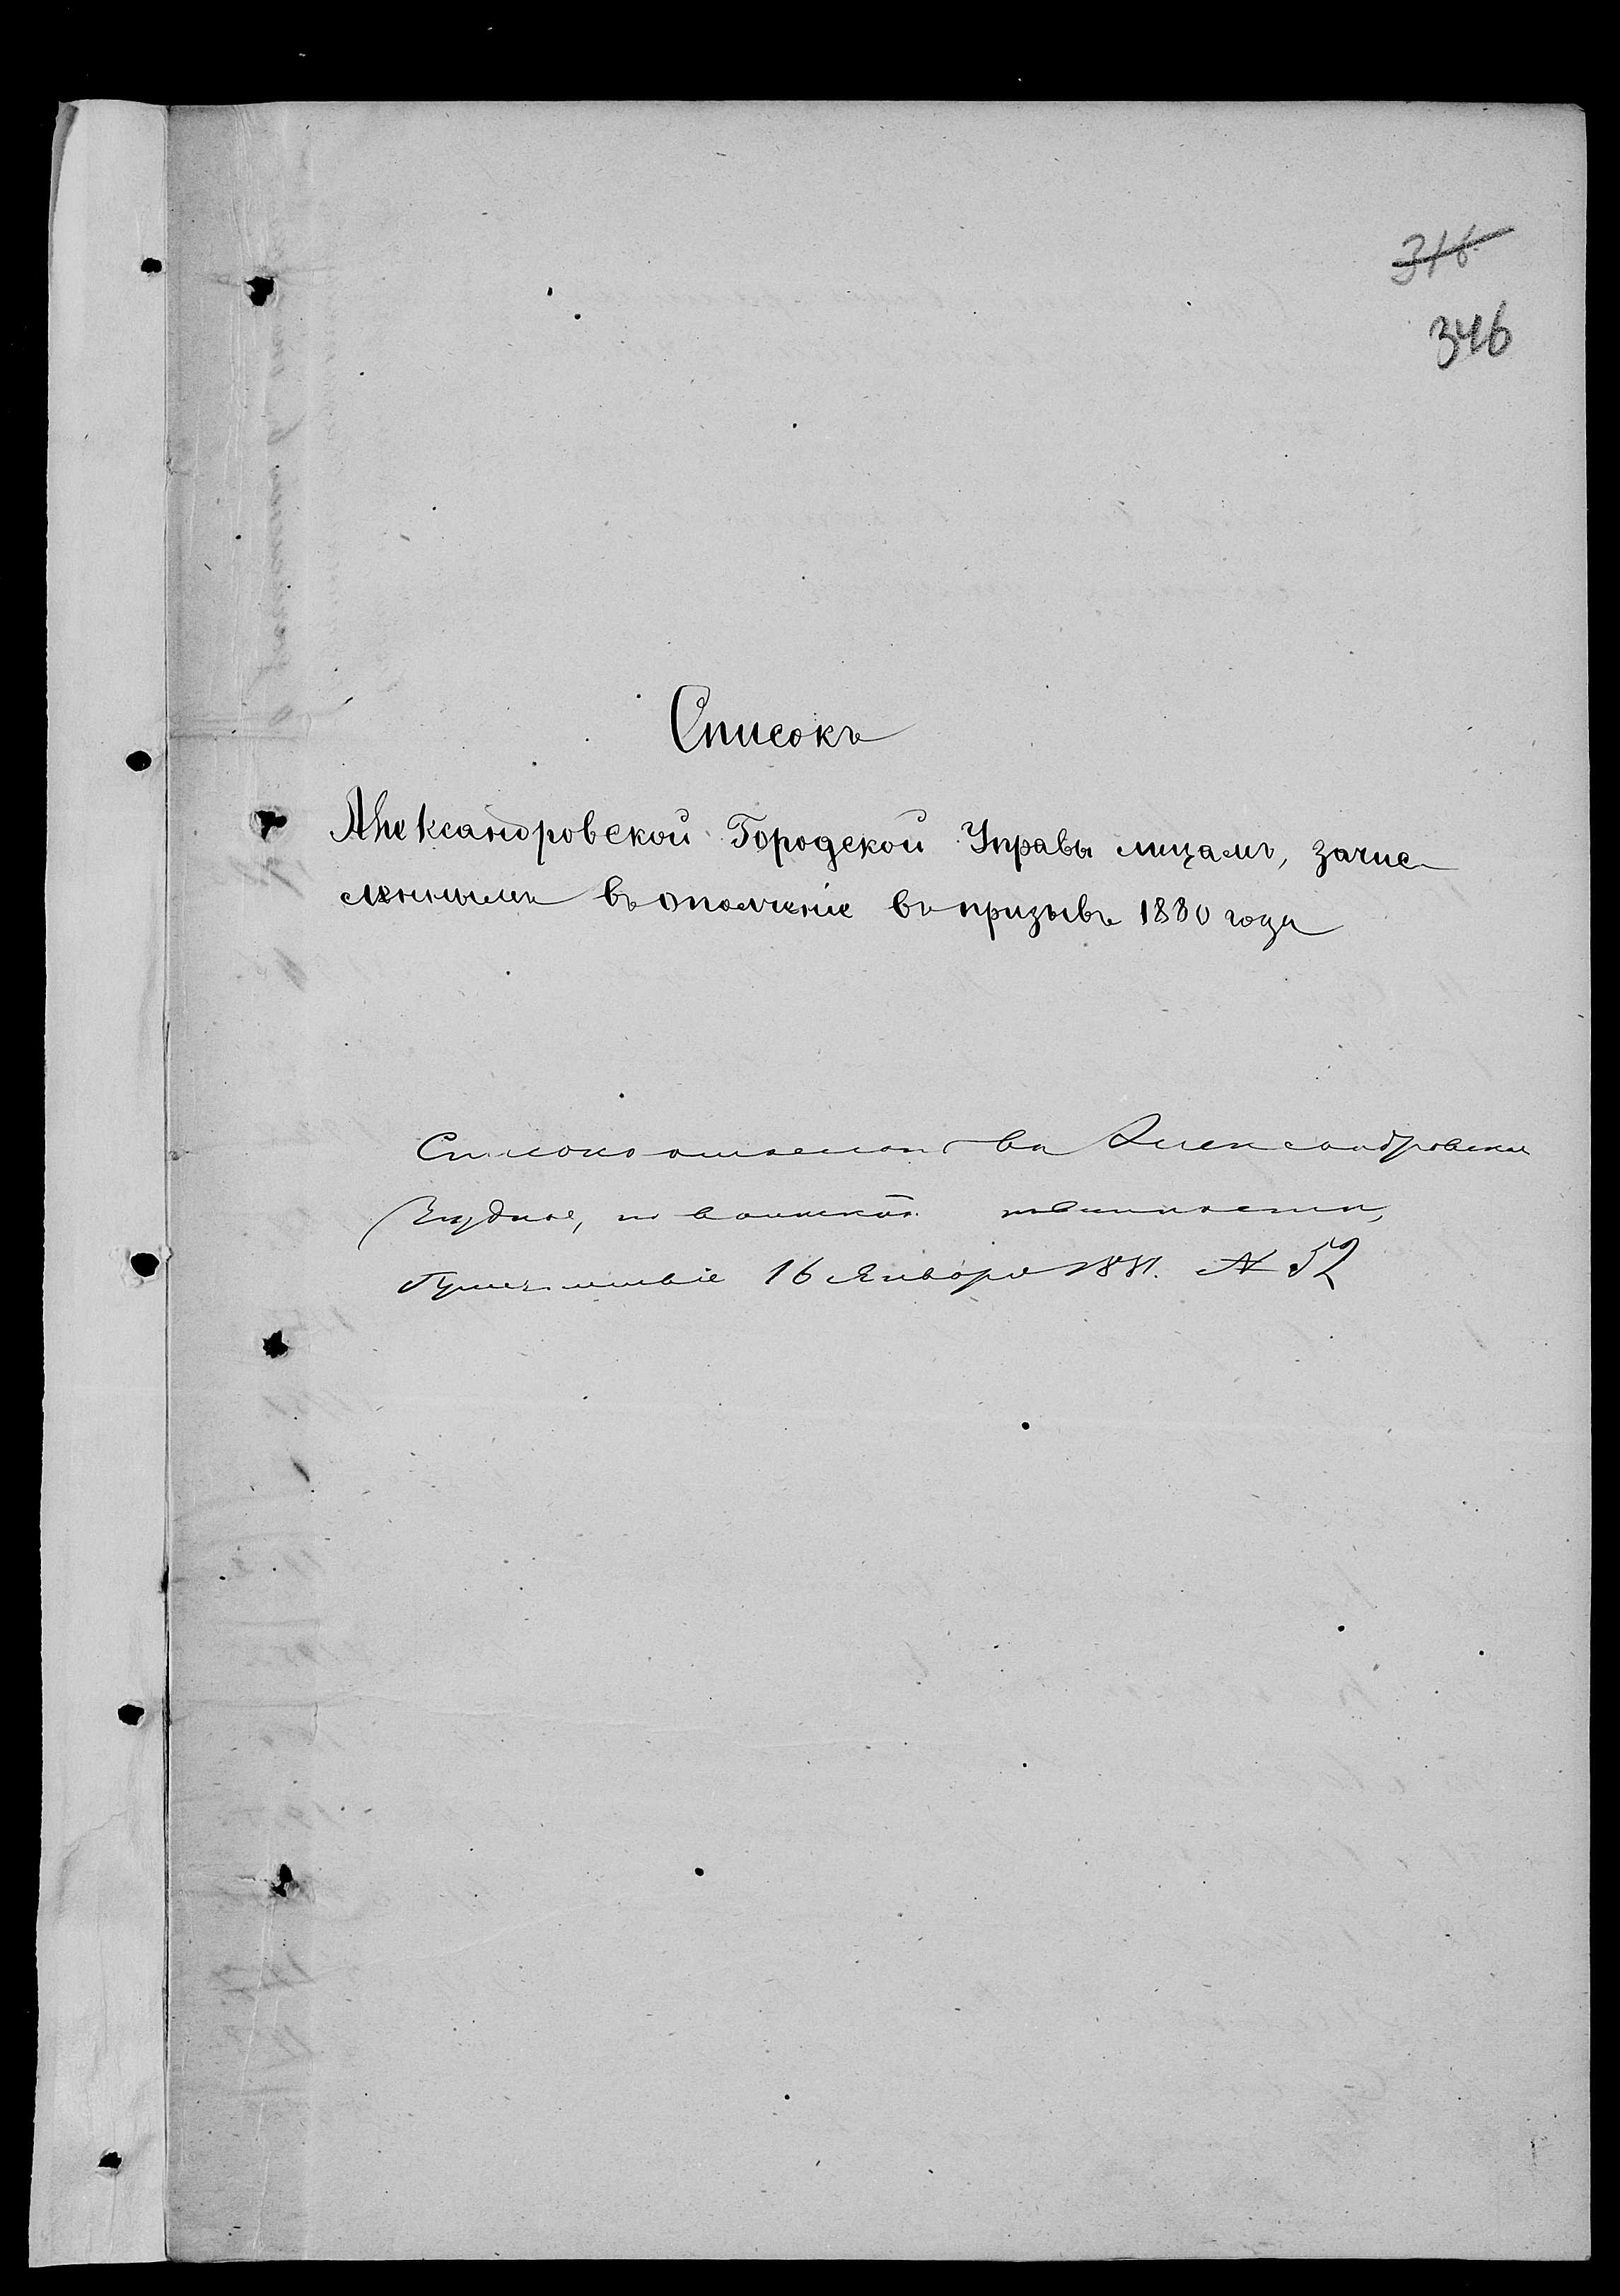 316
346
Списокъ
Александровской Городской Управы лицамъ, зачис-
леннымъ въ ополченіе въ призывъ 1880 года
Списокъ въ Александровское
Уездное, по воинской повинности,
Присутствіе 16 Января 1881. № 52